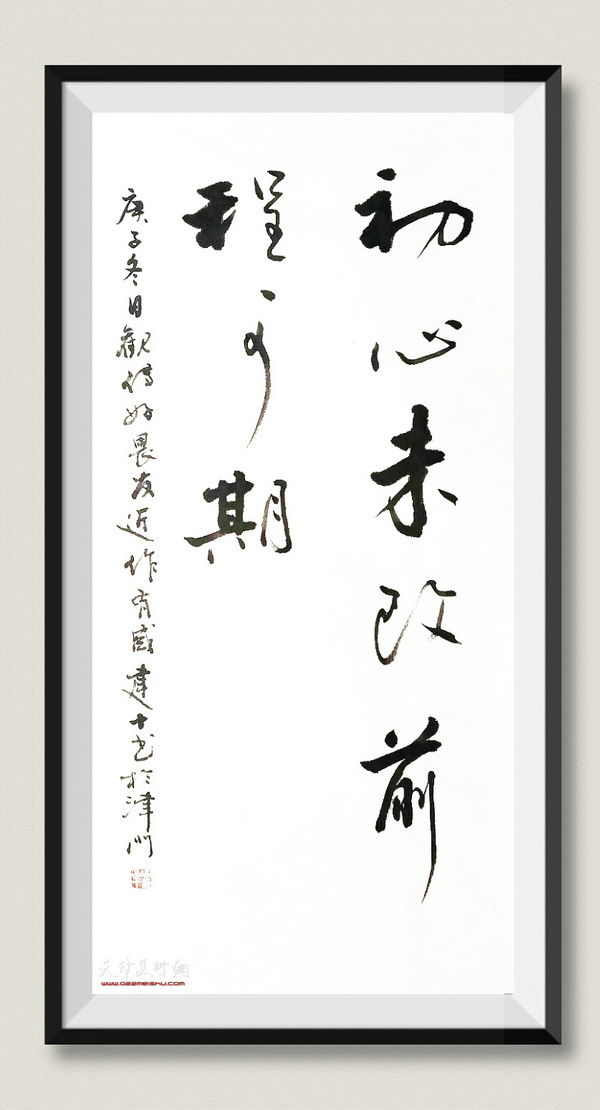 初心未改前
程可期
庚子冬日觀傳好畏友近作有感建十書於津門
天津美術網
www.022meishu.com